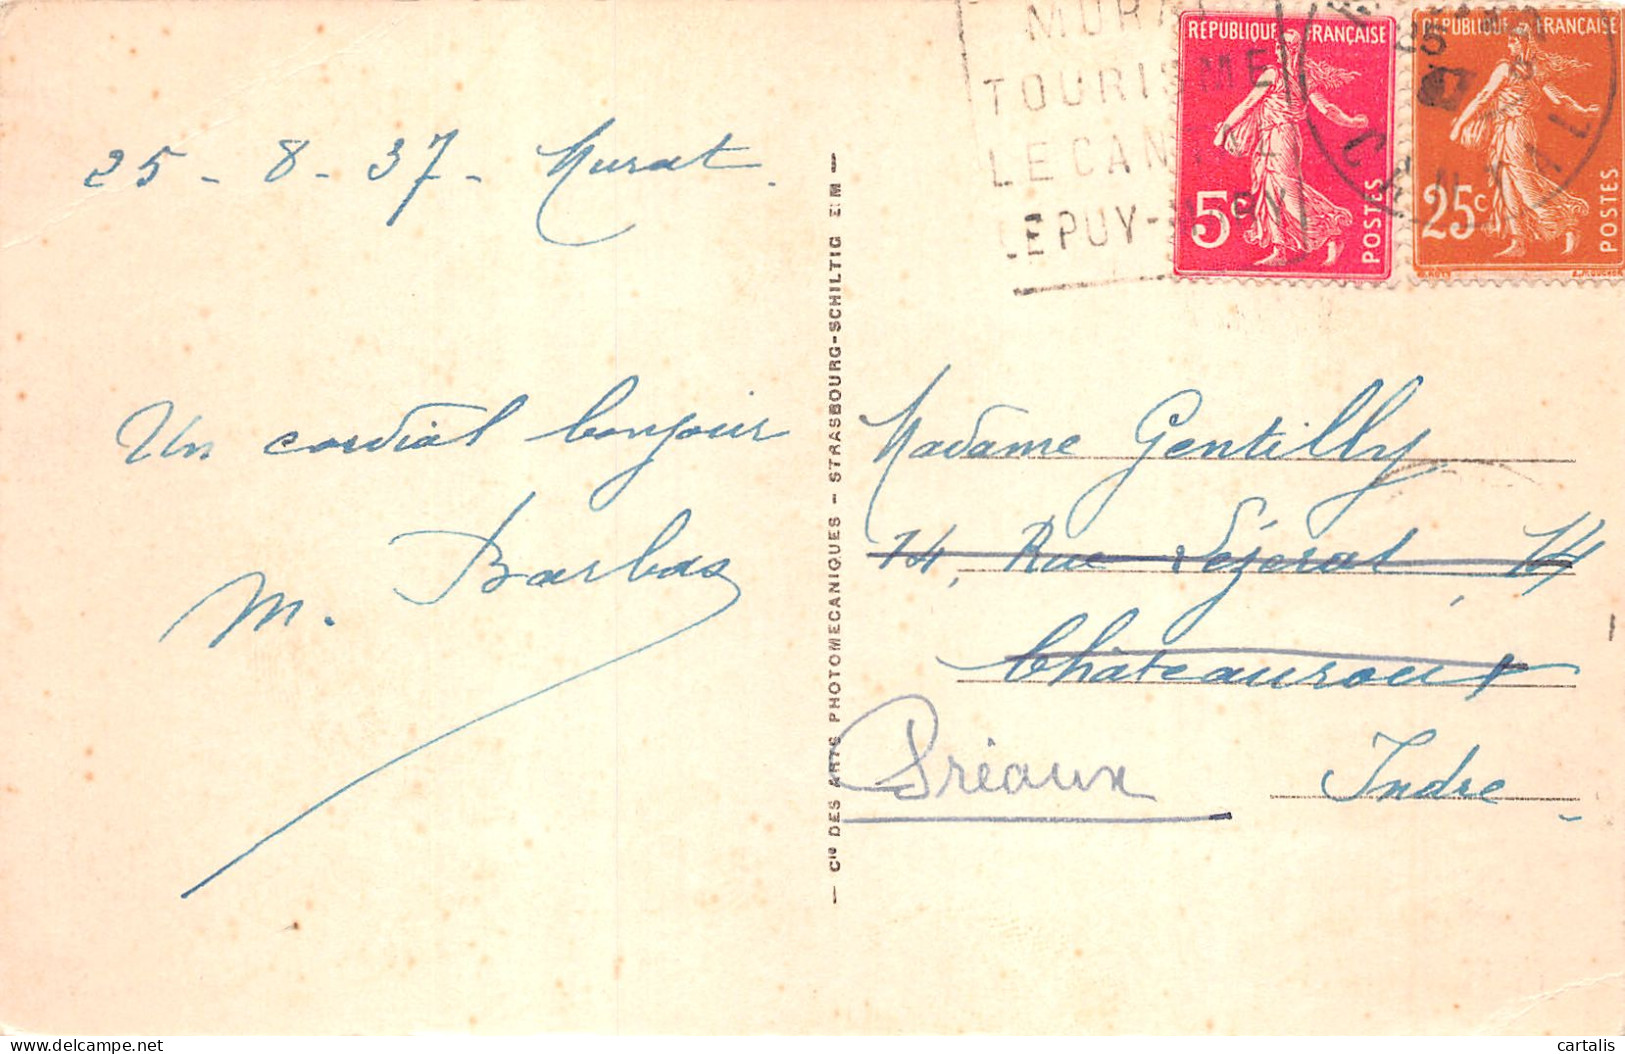 25 - 8 - 37 - Murat.
Un cordial bonjour
M. Barbas
Cie DES ARTS PHOTOMECANIQUES - STRASBOURG-SCHILTIG
MURAT
TOURISME
LE CANTAL
LE PUY-MARY
RÉPUBLIQUE FRANÇAISE
5c
POSTES
RÉPUBLIQUE FRANÇAISE
25c
POSTES
25
CANTAL
Madame Gentilly
14, Rue Séjerat, 14
Châteauroux
Préaux
Indre
cartalis
delcampe.net